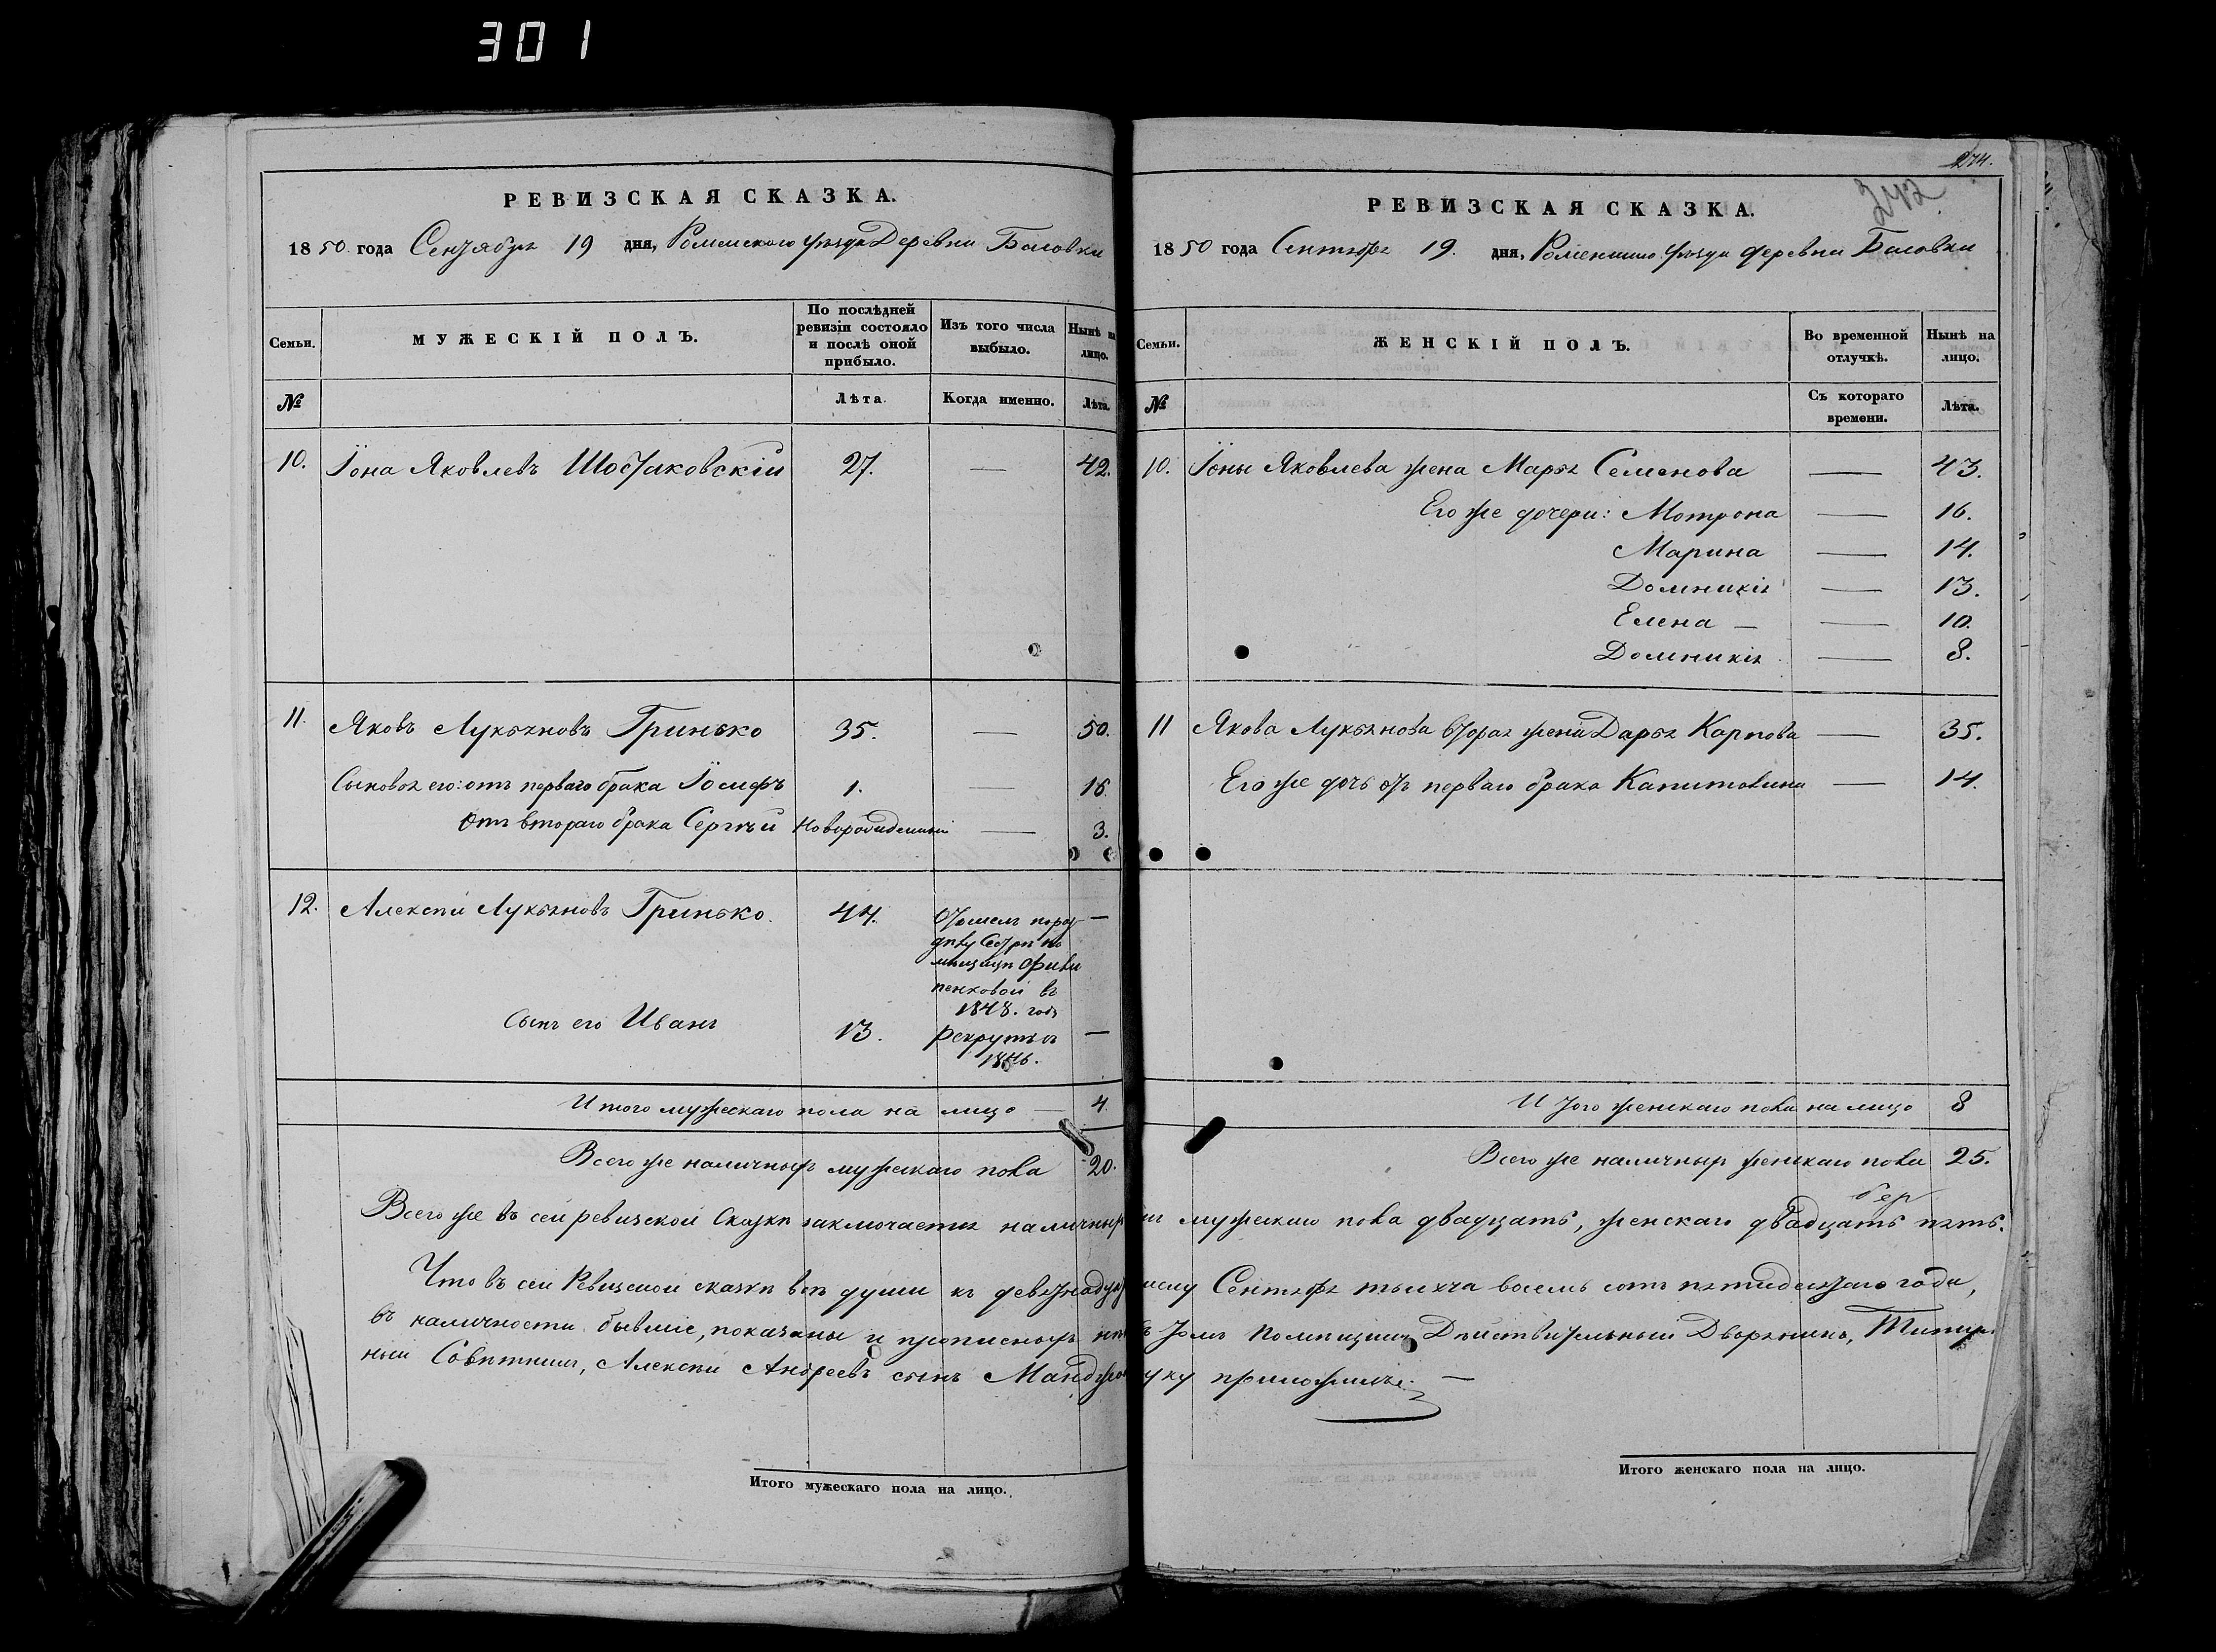 301
274.
242
РЕВИЗСКАЯ СКАЗКА.
1850 года Сентября 19 дня, Роменского уѣзда Деревни Басовки
Семьи. МУЖЕСКІЙ ПОЛЪ. По послѣдней ревизіи состояло и послѣ оной прибыло. Изъ того числа выбыло. Нынѣ на лицо.
№ Лѣта. Когда именно. Лѣта.
10. Іона Яковлевъ Шостаковскій 27. — 42.
11. Яковъ Лукьяновъ Гринько 35. — 50.
Сыновья его: отъ перваго брака Іосифъ 1. — 16
Отъ втораго брака Сергѣй Новорожденный — 3.
12. Алексѣй Лукьяновъ Гринько. 44. —
Отошелъ
Сестрѣ по
мѣщицѣ
пенковой въ
1848. годѣ
Сынъ его Иванъ 13. Рекрутъ въ —
1846.
Итого мужескаго пола на лицо — 4.
Всего же наличныхъ мужескаго пола 20.
РЕВИЗСКАЯ СКАЗКА.
1850 года Сентября 19. дня, Роменскаго уѣзда Деревни Басовки
Семьи. ЖЕНСКІЙ ПОЛЪ. Во временной отлучкѣ. Нынѣ на лицо.
№ Съ котораго времени. Лѣта.
10. Іоны Яковлева жена Марья Семенова — 43.
Его же дочери: Мотрона — 16.
Марина — 14.
Домникія — 13.
Елена — — 10.
Домникія — 8.
11 Якова Лукьянова вторая жена Дарья Карпова — 35.
Его же дочь отъ перваго брака Капитолина — 14.
Итого женскаго пола на лицо 8
Всего же наличныхъ женскаго пола 25.
Всего же въ сей ревизской Сказкѣ заключается наличных мужескаго пола двадцать, женскаго двадцать пять.
Что въ сей Ревизской сказкѣ всѣ души къ Сентября тысяча восемь сотъ пятидесятаго года,
въ наличности бывшіе, показаны и прописныхъ томъ Помѣщикъ Дѣйствительный Дворянинъ,
ный Совѣтникъ, Алексѣй Андреевъ сынъ приложилъ. —
Итого мужескаго пола на лицо.
Итого женскаго пола на лицо.